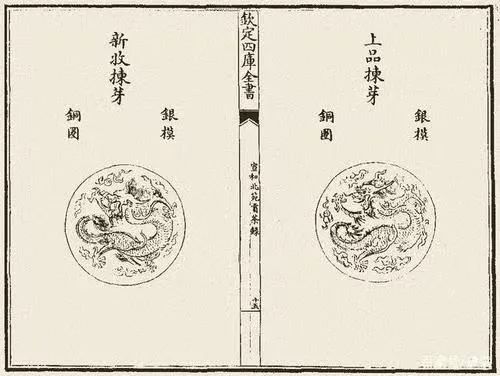 上品揀芽
銀模
銅圈
欽定四庫全書
宣和北苑貢茶錄
十五
新收揀芽
銀模
銅圈